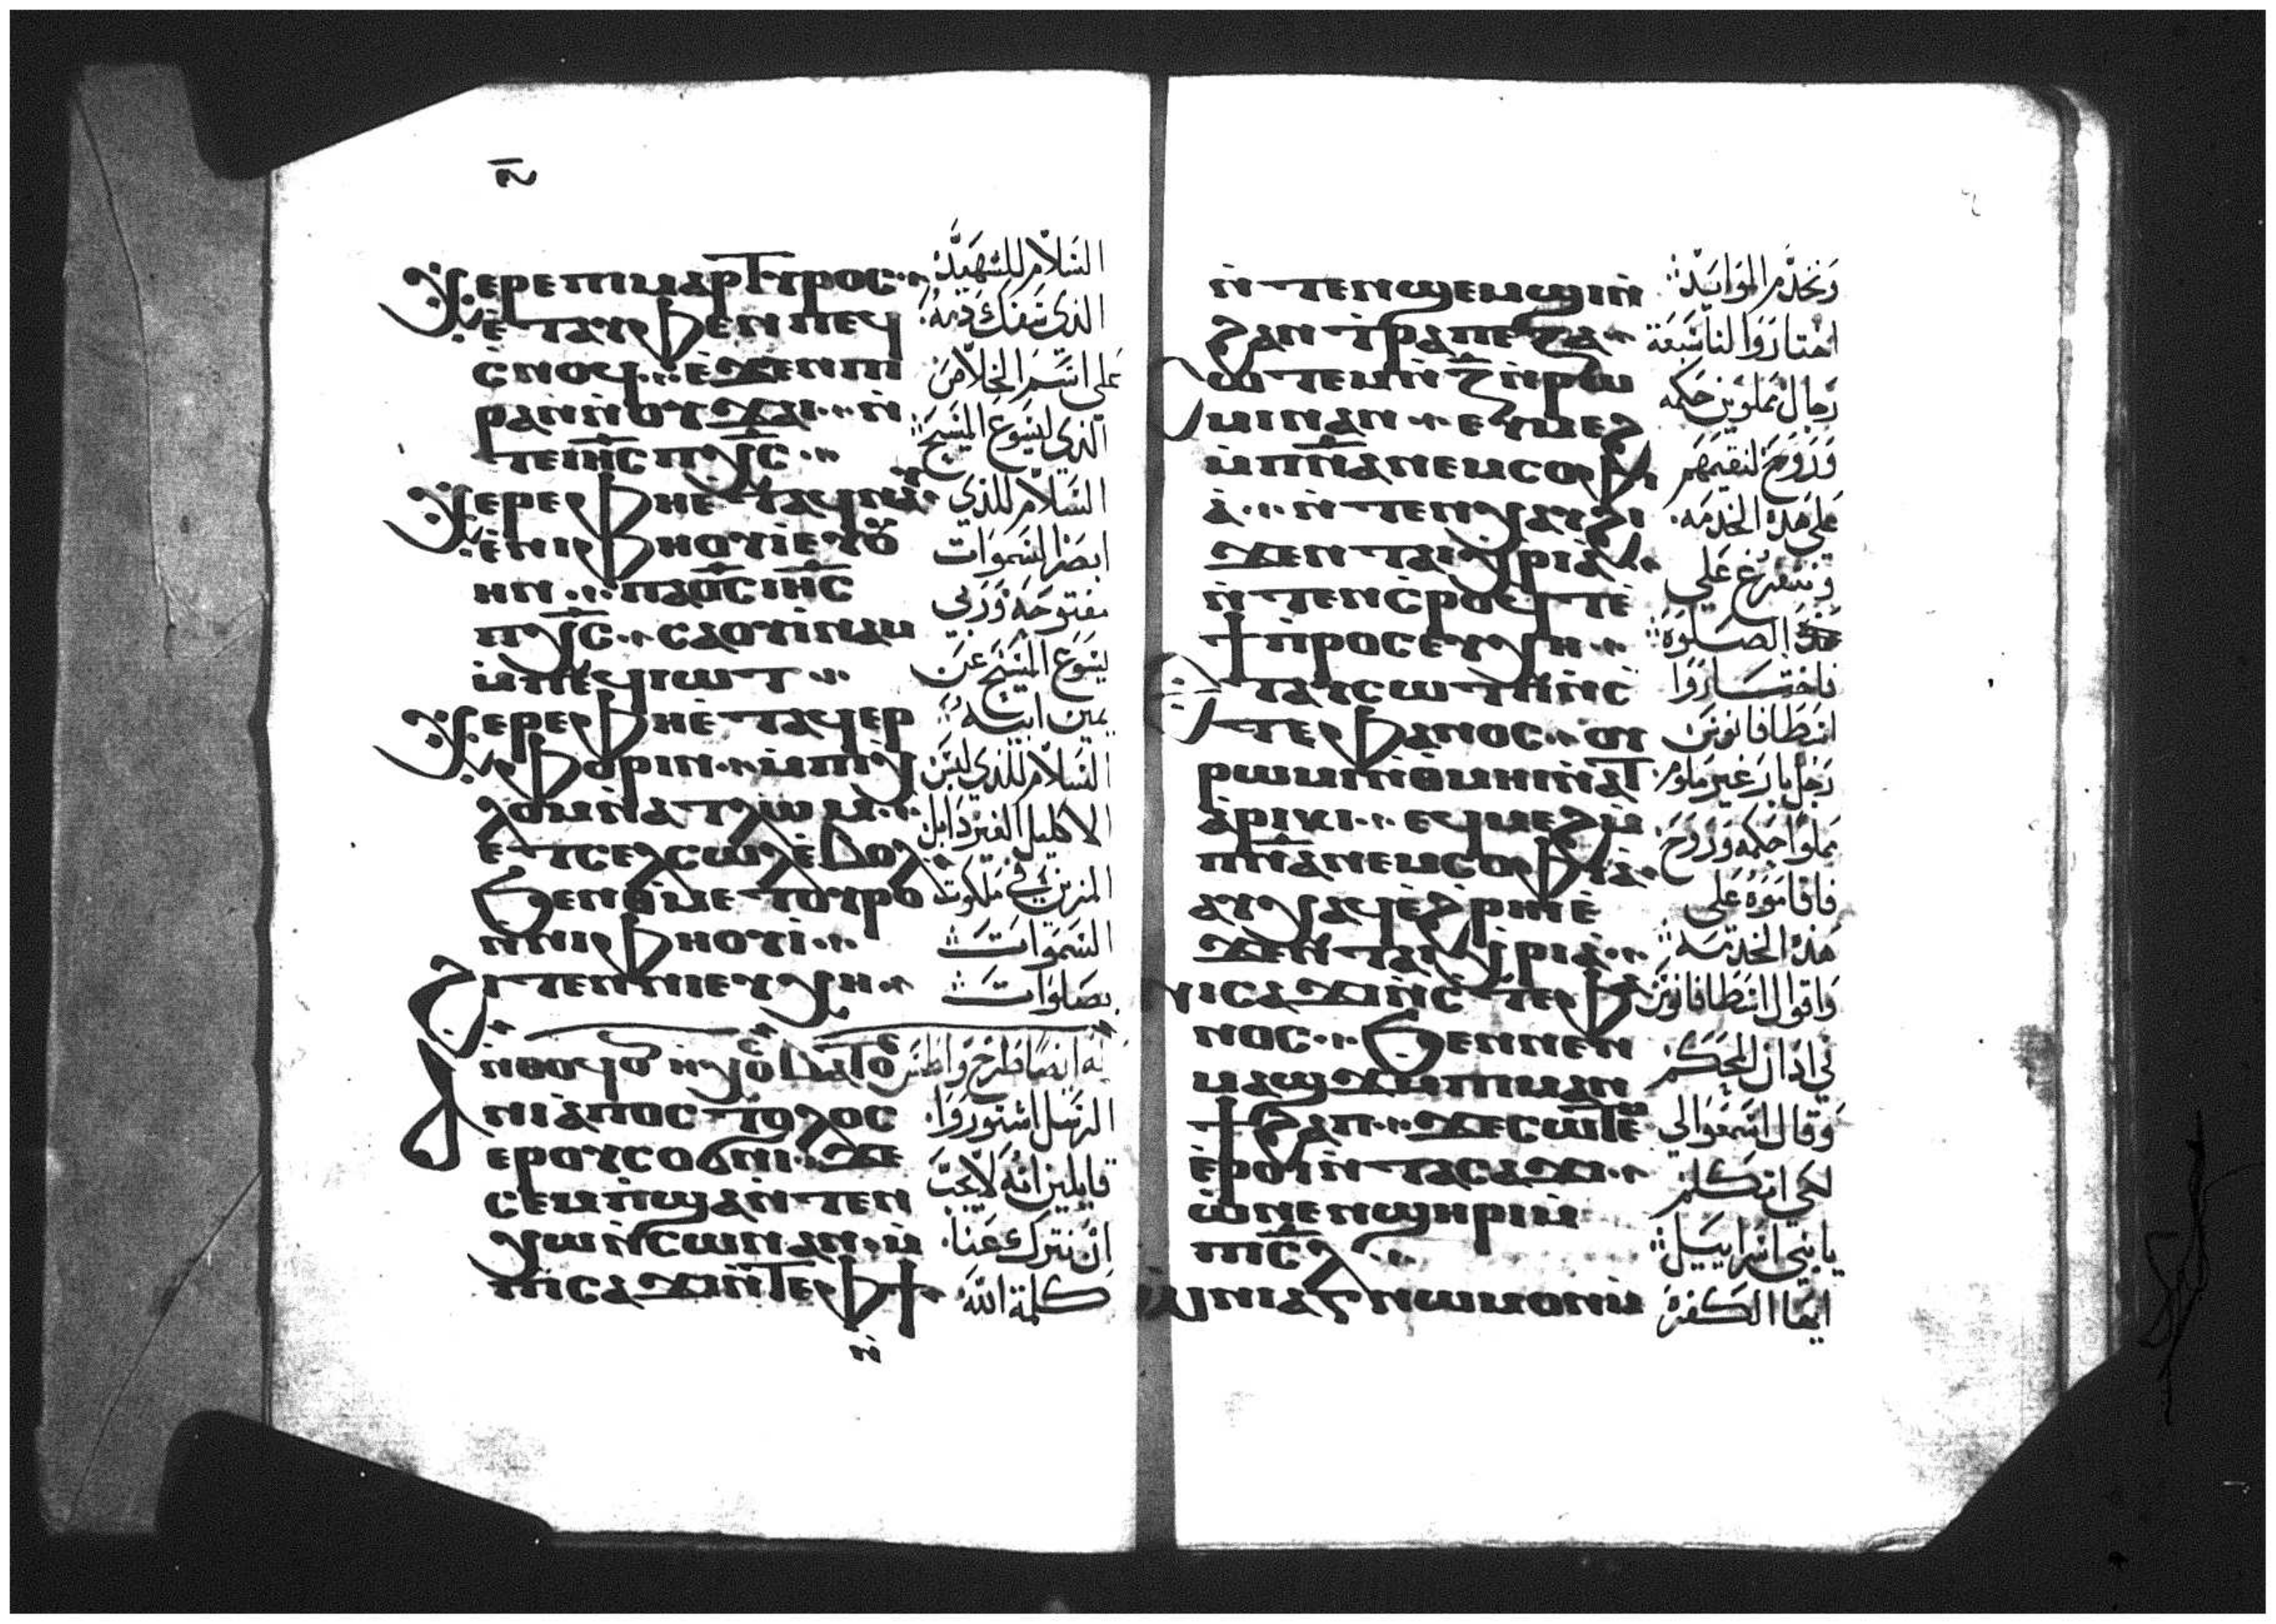 ⲭⲉⲣⲉ ⲡⲓⲙⲁⲣⲧⲩⲣⲟⲥ
ⲉ̀ⲧⲁϥ ⲫⲉⲛ ⲡⲉϥ
ⲥ̀ⲛⲟϥ ⲉ̀ϫⲉⲛ ⲡⲓ
ⲣⲁⲛ ⲛ̀ⲟⲩϫⲁⲓ ⲛ̀
ⲧⲉ ⲓⲏ̅ⲥ̅ ⲡⲭ̅ⲥ̅
ⲭⲉⲣⲉ ⲫⲏⲉ̀ⲧⲁϥⲛⲁⲩ
ⲉ̀ⲛⲓⲫⲏⲟⲩⲓ̀ ⲉⲩⲟⲩ
ⲏⲛ ⲡⲁⲟ̅ⲥ̅ ⲓⲏ̅ⲥ̅
ⲡⲭ̅ⲥ̅ ⲥⲁⲟⲩⲓ̀ⲛⲁⲙ
ⲙ̀ⲡⲉϥⲓⲱⲧ
ⲭⲉⲣⲉ ⲫⲏⲉ̀ⲧⲁϥⲉⲣ
ⲫⲟⲣⲓⲛ ⲙ̀ⲡⲓⲭ
ⲗⲟⲙ ⲛ̀ⲁⲧⲗⲱⲙ
ⲉⲧⲥⲉⲗⲥⲱⲗ ⲉ̀ⲃⲟⲗ
ϧⲉⲛ ⲑⲙⲉⲧⲟⲩⲣⲟ
ⲛ̀ⲛⲓⲫⲏⲟⲩⲓ̀
ϩⲓⲧⲉⲛ ⲛⲓⲉⲩⲭⲏ
ⲛⲓⲁ̀ⲡⲟⲥⲧⲟⲗⲟⲥ
ⲉⲣⲟⲩⲥⲟϭⲛⲓ ϫⲉ
ⲥⲉⲙ̀ⲡϣⲁ ⲛ̀ⲧⲉⲛ
ⲭⲱ ⲛ̀ⲥⲱⲛ ⲁⲛ ⲙ̀
ⲡⲓⲥⲁϫⲓ ⲛ̀ⲧⲉ ⲫϯ
السلام للشهيد
الذي سفك دمه
على اسم الخلاص
الذي ليسوع المسيح
السلام للذي
ابصر السموات
مفتوحه وربي
يسوع المسيح عن
يمين ابيه
السلام للذي لبس
الاكليل الغير دابل
المزين في ملكوت
السموات
بصلوات
الرسل اشتوروا
قايلين انه لا يجب
ان نترك عنا
كلمة الله
ⲛ̀ⲧⲉⲛϣⲉⲙϣⲓ ⲛ̀
ϩⲁⲛⲧ̀ⲣⲁⲡⲉⲍⲁ
ⲙⲓ ⲛⲁⲛ ⲉⲩⲙⲉϩ
ⲙ̀ⲡⲛ̅ⲁ̅ ⲛⲉⲙ ⲥⲟⲫⲓ
ⲁ̀ ⲛ̀ⲧⲉⲛⲭⲁⲩ ϩⲓ
ϫⲉⲛ ⲧⲁⲓⲭⲣⲓⲁ̀
ⲛ̀ⲧⲉⲛⲥ̀ⲣⲟϥⲧ ⲉ̀
ϯⲡ̀ⲣⲟⲥⲉⲩⲭⲏ
ⲧⲁⲩⲥⲱⲧⲡ ⲛ̀ⲥ
ⲧⲉⲫⲁⲛⲟⲥ ⲟⲩ
ⲣⲱⲙⲓ ⲛ̀ⲑⲙⲏⲓ ⲛ̀ⲁⲧ
ⲁ̀ⲣⲓⲕⲓ ⲉϥⲙⲉϩ ⲙ̀
ⲡⲛ̅ⲁ̅ ⲛⲉⲙ ⲥⲟⲫⲓⲁ̀
ⲁⲩⲭⲁϥ ⲉ̀ϩ̀ⲣⲏⲓ ⲉ̀
ϫⲉⲛ ⲧⲁⲓⲭⲣⲓⲁ
ⲡⲓⲥⲁϫⲓ ⲛ̀ⲥⲧⲉⲫⲁ
ⲛⲟⲥ ϧⲉⲛ ⲛⲉⲛ
ⲙⲁϣϫ ⲙ̀ⲡⲓⲙⲁⲛ
ϯϩⲁⲡ ϫⲉ ⲥⲱⲧⲉⲙ
ⲉ̀ⲣⲟⲓ ⲛ̀ⲧⲁⲥⲁϫⲓ
ⲱ̀ ⲛⲉⲛϣⲏⲣⲓ ⲙ̀
ⲡⲓⲥ̅ⲗ̅
ونخدم الموايد
اختاروا لنا سبعة
رجال مملوين حكمه
وروح لنقيمهم
على هذه الخدمه
ونتفرغ على
الصلوة
فاختاروا
اسطافانوس
رجل بار غير ملوم
مملوا حكمه وروح
فاقاموه على
هذه الخدمه
واقوال اسطافانوس
في اذان الحكم
وقال اسمعوا الي
لكي اتكلم
يا بني اسراييل
ايها الكفره